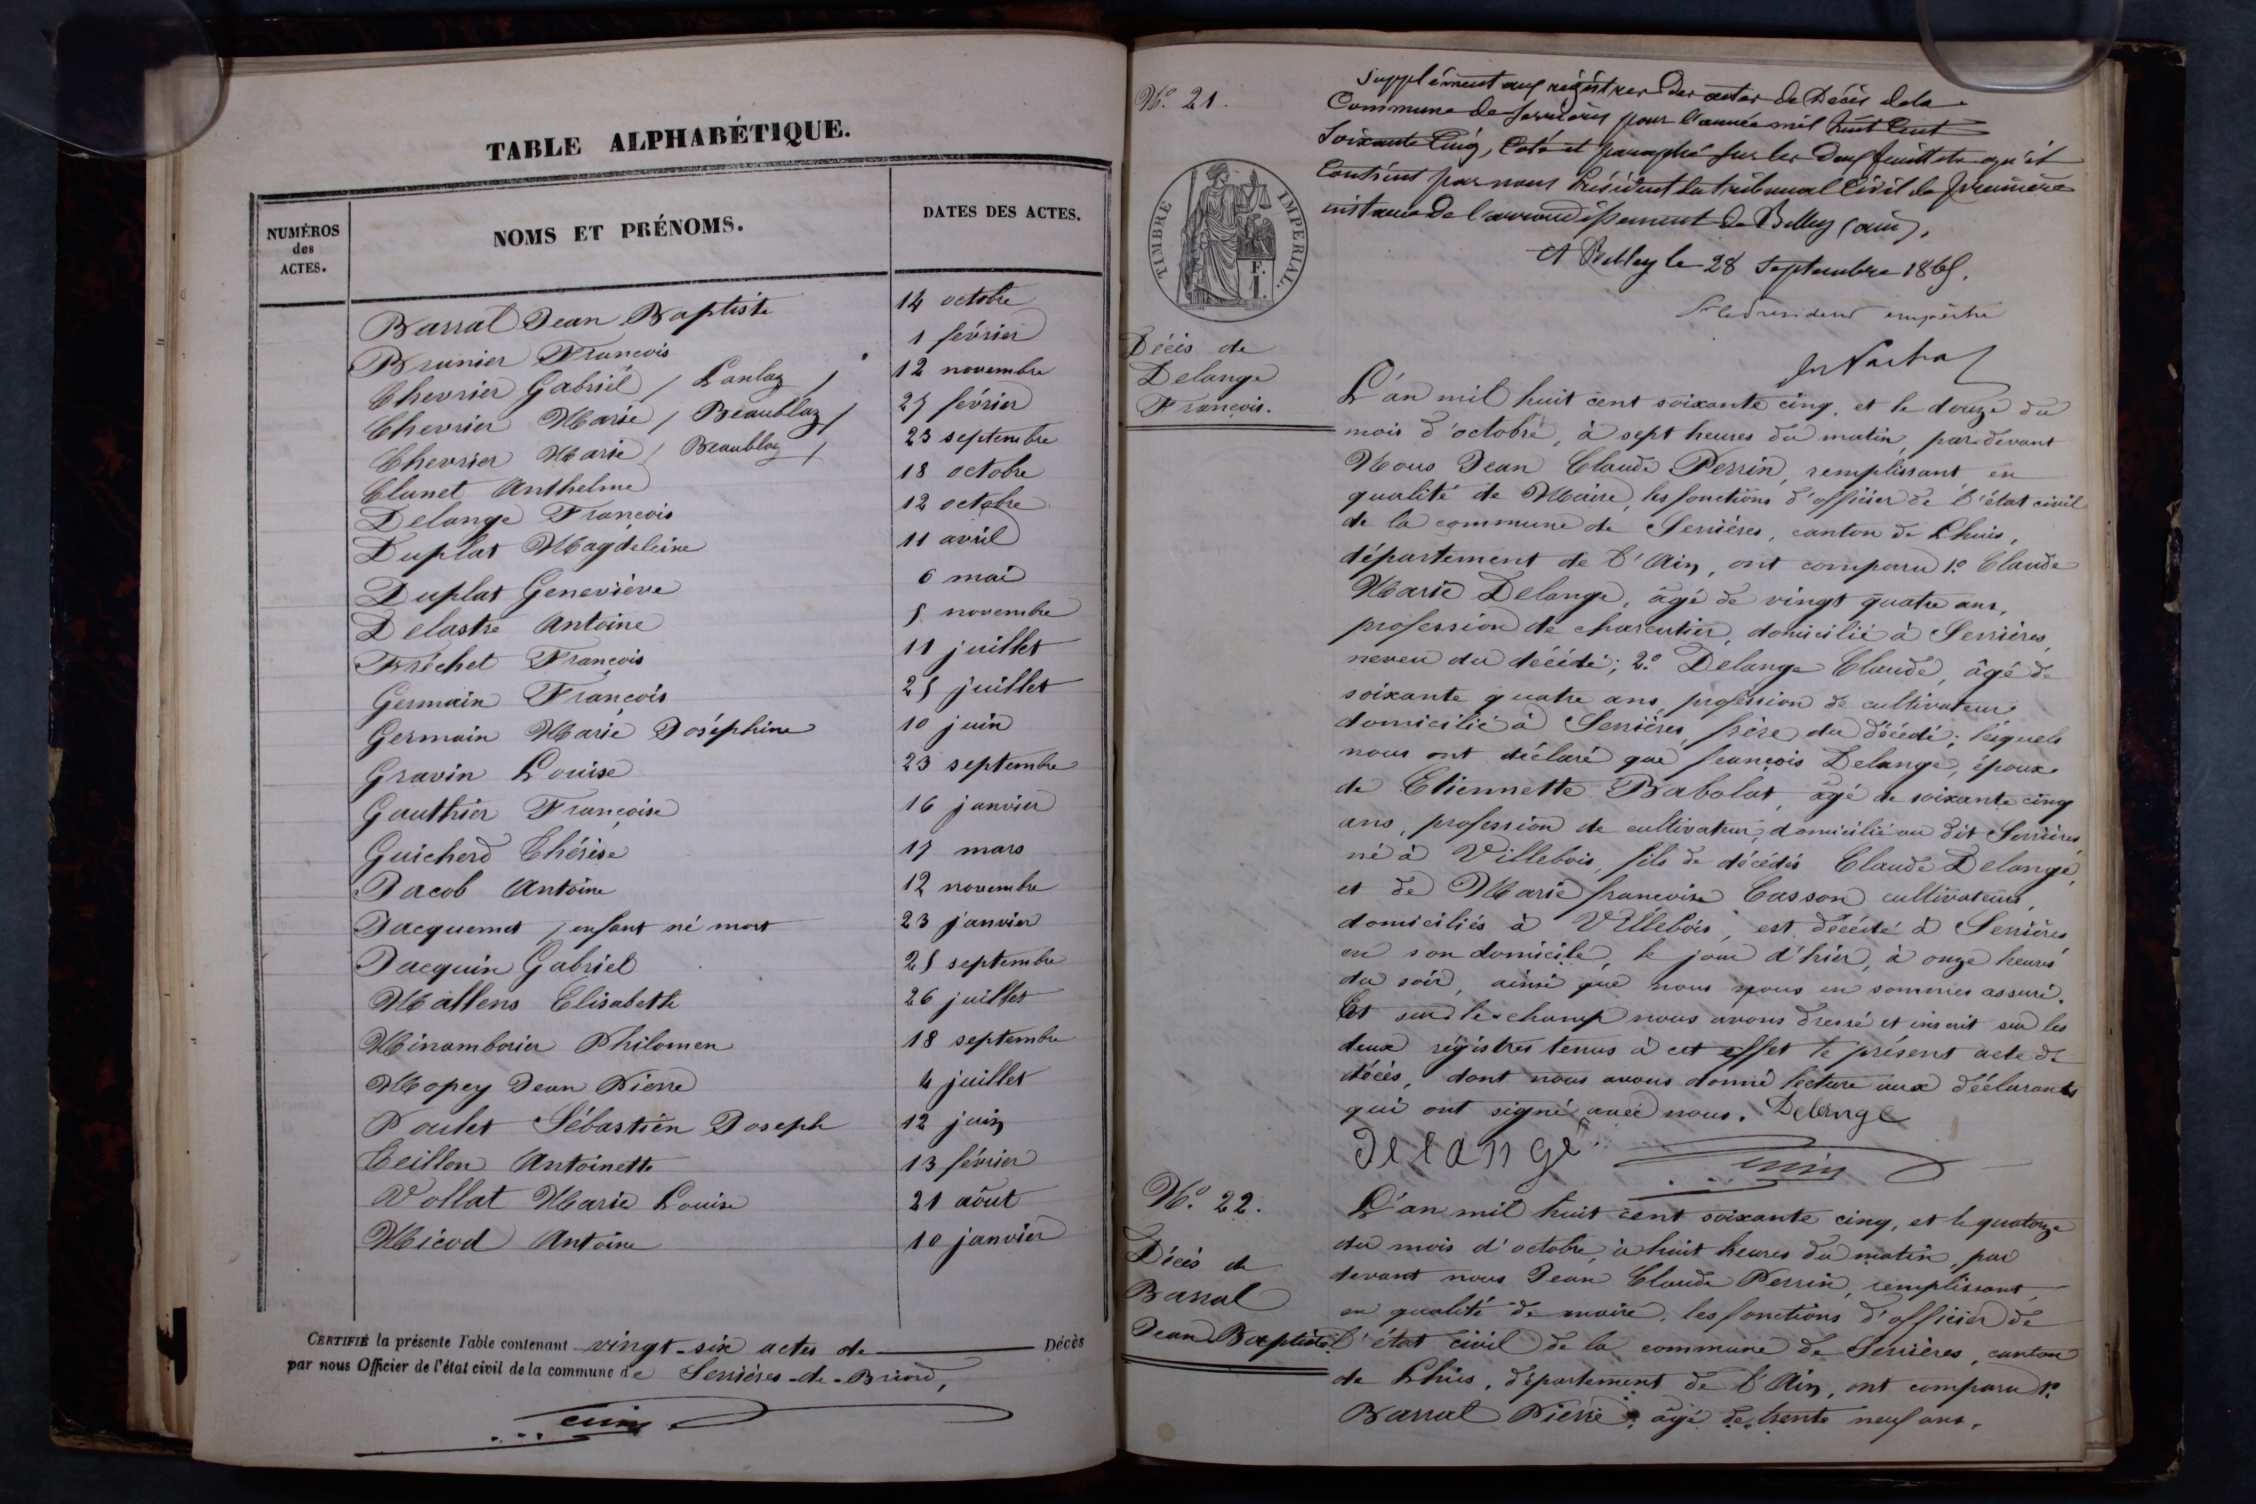 TABLE ALPHABÉTIQUE.
NUMÉROS
des
ACTES.
NOMS ET PRÉNOMS.
DATES DES ACTES.
Barral Jean Baptiste 14 octobre
Brunier François 1 février
Chevrier Gabriel / Lanlaz / 12 novembre
Chevrier Marie / Beaublaz / 27 février
Chevrier Marie / Beaublaz / 23 septembre
Clunet Anthelme 18 octobre
Delange François 12 octobre
Duplat Magdeleine 11 avril
Duplat Geneviève 6 mai
Delastre Antoine 5 novembre
Fréchet François 11 juillet
Germain François 25 juillet
Germain Marie Joséphine 10 juin
Gravin Louise 23 septembre
Gauthier Françoise 16 janvier
Guicherd Thérèse 17 mars
Jacob Antoine 12 novembre
Jacquemet / enfant né mort 23 janvier
Jacquin Gabriel 25 septembre
Mallens Elisabeth 26 juillet
Minamborier Philomen 18 septembre
Mopey Jean Pierre 4 juillet
Poulet Sébastien Joseph 12 juin
Teillon Antoinette 13 février
Vollat Marie Louise 21 août
Micod Antoine 10 janvier
CERTIFIÉ la présente Table contenant vingt-six actes de Décès
par nous Officier de l'état civil de la commune de Serrières-de-Briord,
N.° 21.
Supplément aux régistres des actes de Décès de la
Commune de Serrières pour l'année mil huit Cent
Soixante Cinq, Coté et paraphé sur les deux feuillets qu'il
Contient par nous Président du tribunal Civil de première
instance de l'arrondissement de Belley (ain).
A Belley le 28 Septembre 1865.
Pr le Président empêché
TIMBRE IMPERIAL.
F.
I.
Décès de
Delange
François.
L'an mil huit cent soixante cinq, et le douze du
mois d'octobre, à sept heures du matin, par devant
Nous Jean Claude Perrin, remplissant en
qualité de Maire, les fonctions d'officier de l'état civil
de la commune de Serrières, canton de Lhuis,
département de l'Ain, ont comparu 1.° Claude
Marie Delange, âgé de vingt quatre ans,
profession de charcutier, domicilié à Serrières,
neveu du décédé; 2.° Delange Claude, âgé de
soixante quatre ans, profession de cultivateur
domicilié à Serrières, frère du décédé; lesquels
nous ont déclaré que françois Delange, époux
de Etiennette Babolat, âgé de soixante cinq
ans, profession de cultivateur, domicilié au dit Serrières,
né à Villebois, fils de décédés Claude Delange,
et de Marie françoise Casson cultivateurs,
domiciliés à Villebois, est décédé à Serrières
en son domicile, le jour d'hier, à onze heures
du soir, ainsi que nous nous en sommes assuré.
Et sur le champ nous avons dressé et inscrit sur les
deux régistres tenus à cet effet le présent acte de
décès, dont nous avons donné lecture aux déclarants
qui ont signé avec nous. Delange
Delange Perrin
N.° 22.
Décès de
Barral
Jean Baptiste
L'an mil huit cent soixante cinq, et le quatorze
du mois d'octobre, à huit heures du matin, par
devant nous Jean Claude Perrin, remplissant,
en qualité de maire, les fonctions d'officier de
l'état civil de la commune de Serrières, canton
de Lhuis, département de l'Ain, ont comparu 1.°
Barral Pierre, âgé de trente neuf ans,